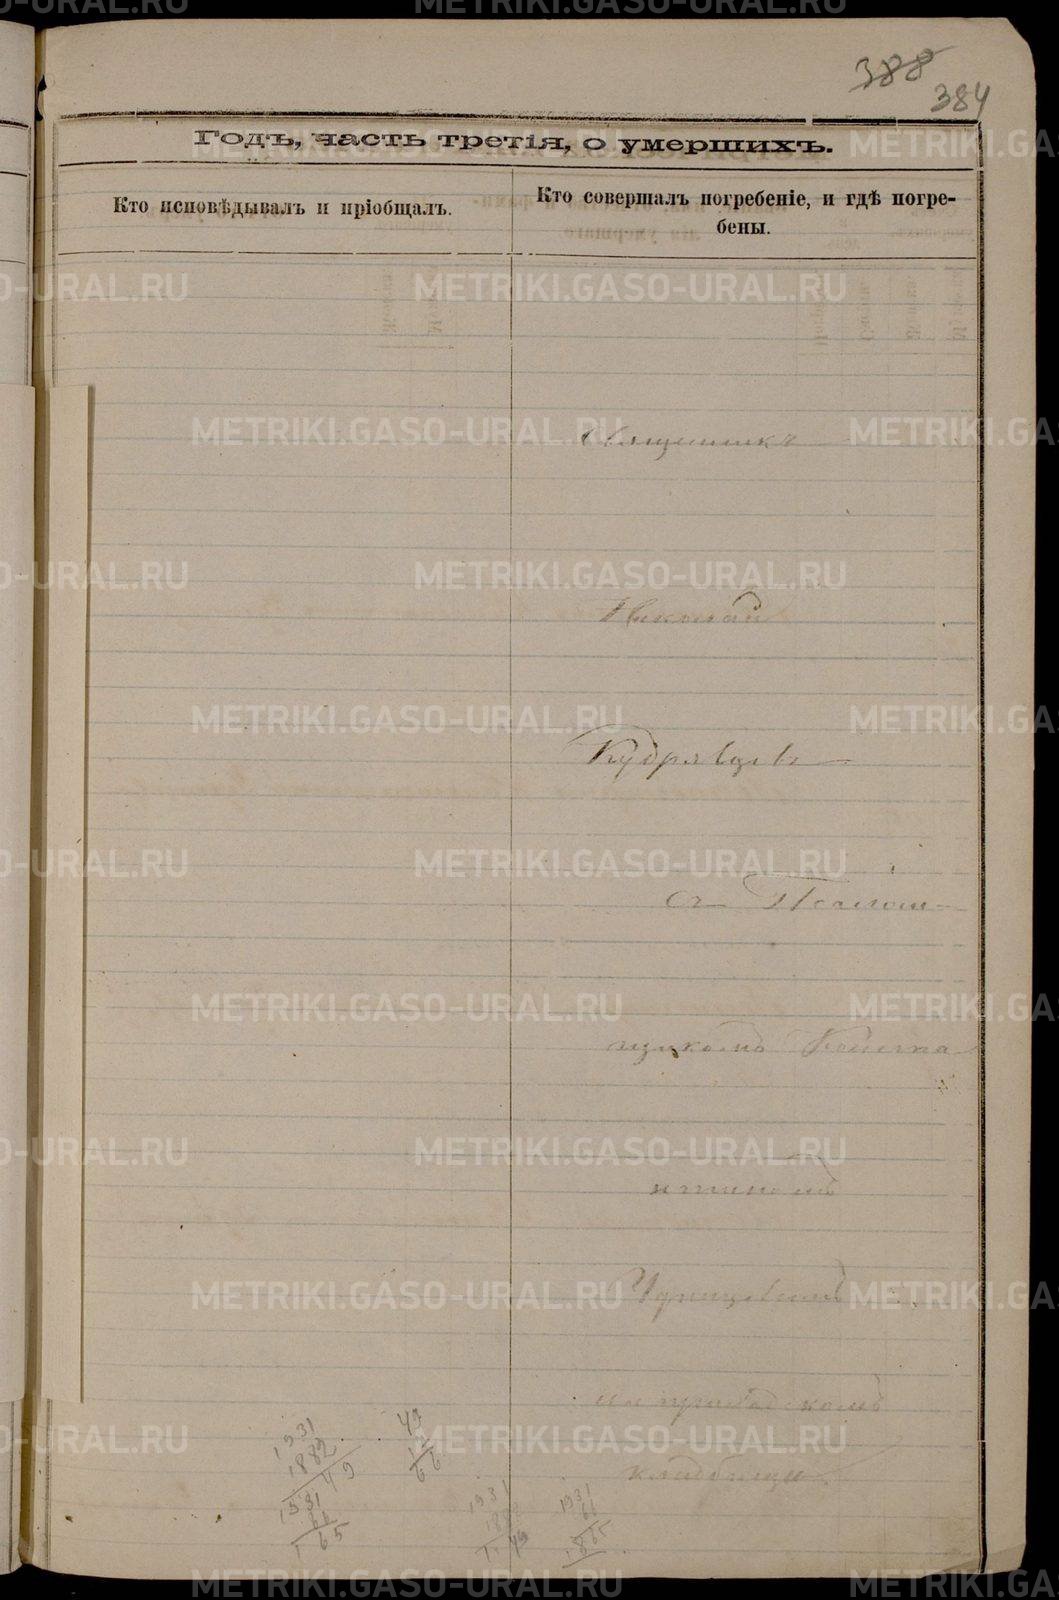 388
384
Годъ, часть третія, о умершихъ.
Кто исповѣдывалъ и пріобщалъ.
Кто совершалъ погребеніе, и гдѣ погре-
бены.
Священникъ
Николай
Кудрявцевъ
съ Псалом-
щикомъ
на приходскомъ
кладбищѣ.
1931
1882
49
1931
66
1865
1931
66
1865
METRIKI.GASO-URAL.RU